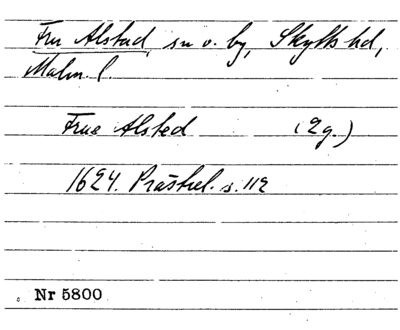 Fru Alstad, sn o. by, Skytts hd,
Malm. l.
Frue Alsted (2g.)
1624. Prästrel. s. 112
Nr 5800